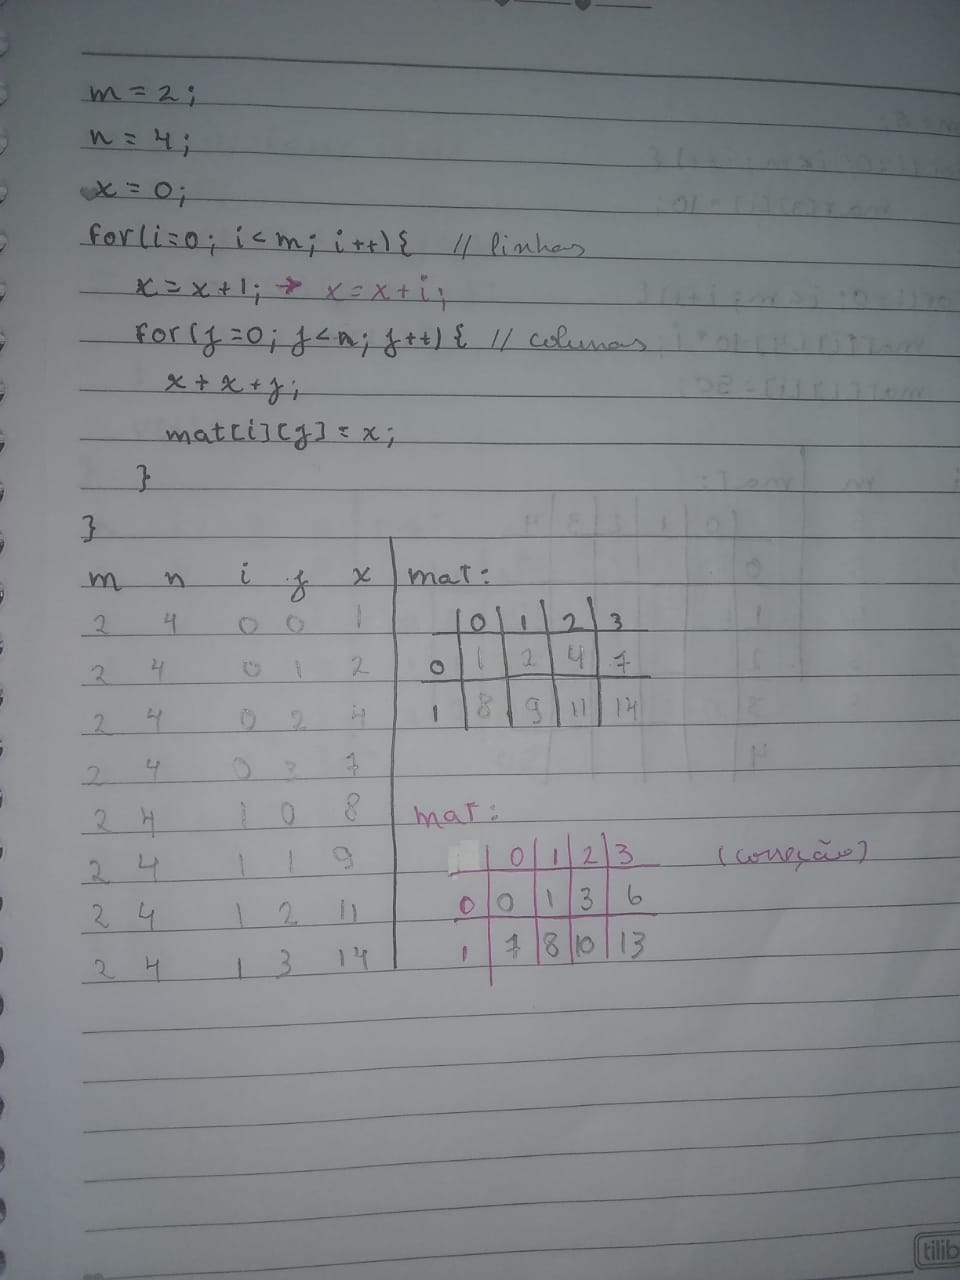 m = 2;
n = 4;
x = 0;
for(i=0; i<m; i++){ // linhas
x = x+1; → x = x+i;
for(j=0; j<n; j++) { // colunas
x + x + j;
mat[i][j] = x;
}
}
m n i j x
2 4 0 0 1
2 4 0 1 2
2 4 0 2 4
2 4 0 3 7
2 4 1 0 8
2 4 1 1 9
2 4 1 2 11
2 4 1 3 14
mat:
0 1 2 3
0 1 2 4 7
1 8 9 11 14
mat:
0 1 2 3 (correção)
0 0 1 3 6
1 7 8 10 13
tilib